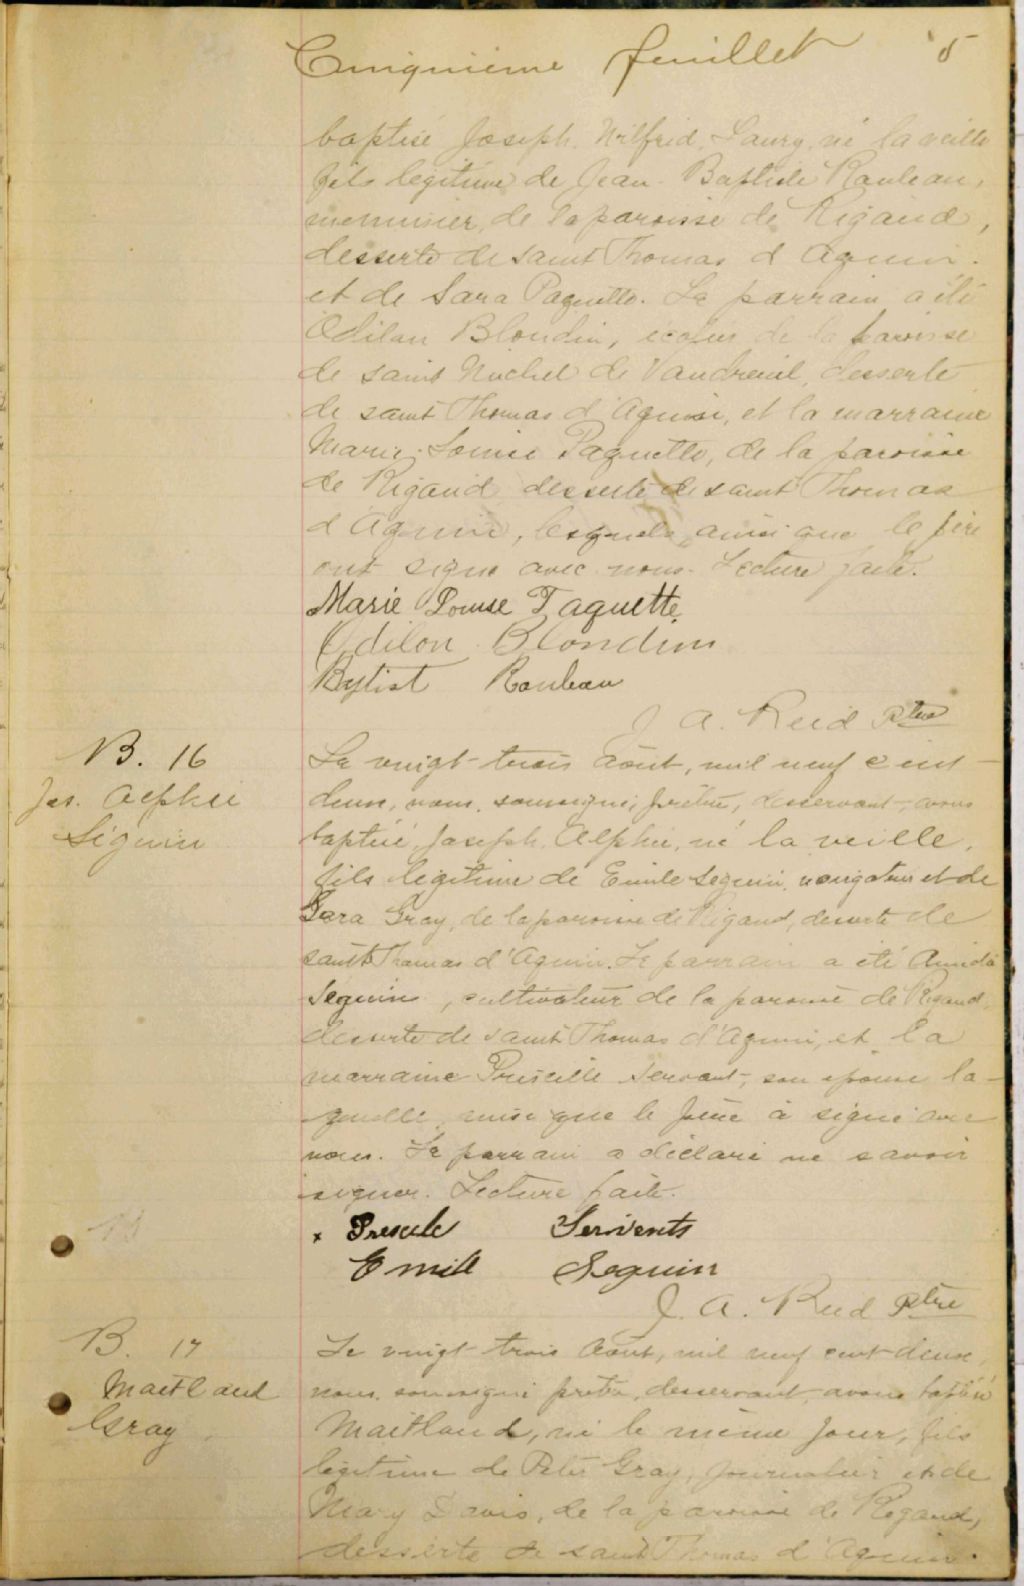 Cinquième feuillet 5
baptisé Joseph, Wilfrid, Laury, né la veille
fils légitime de Jean-Baptiste Rauleau,
menuisier, de la paroisse de Rigaud,
desserte de saint Thomas d'Aquin.
et de Sara Paquette. Le parrain a été
Odilon Blondin, de la paroisse
de saint Michel de Vaudreuil, desserte
de saint Thomas d'Aquin, et la marraine
Marie-Louise Paquette, de la paroisse
de Rigaud desserte de saint Thomas
d'Aquin, lesquels, ainsi que le père
ont signé avec nous. Lecture faite.
Marie Louise Paquette
Odilon Blondin
Baptist Rauleau
J. A. Reid Ptre
B. 16
Jos. Alphée
Séguin
Le vingt-trois août, mil neuf cent-
deux, nous, soussigné, prêtre, desservant, avons
baptisé, Joseph, Alphée, né la veille,
fils légitime de Emile Seguin, navigateur et de
Sara Gray, de la paroisse de Rigaud, desserte de
saint Thomas d'Aquin. Le parrain a été
Seguin, cultivateur de la paroisse de Rigaud,
desserte de saint Thomas d'Aquin, et la
marraine Priscille Servant, son épouse la-
quelle, ainsi que le père a signé avec
nous. Le parrain a déclaré ne savoir
signer. Lecture faite.
x Presule Servents
Emill Seguin
J. A. Reid Ptre
B. 17
Maitland
Gray
Le vingt-trois août, mil neuf cent deux,
nous, soussigné prêtre, desservant, avons baptisé
Maitland, né le même jour, fils
légitime de Peter Gray, journalier et de
Mary Davis, de la paroisse de Rigaud,
desserte de saint Thomas d'Aquin.